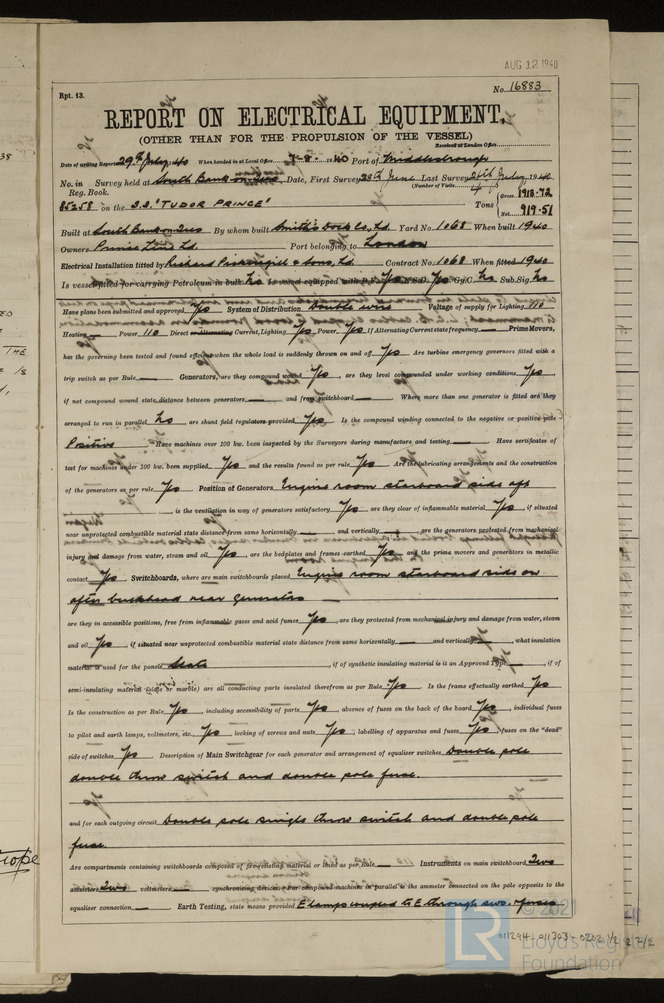 AUG 12 1940
Rpt. 13.
No. 16883
REPORT ON ELECTRICAL EQUIPMENT.
(OTHER THAN FOR THE PROPULSION OF THE VESSEL)
Received at London Office
Date of writing Report 29th July 1940 When handed in at Local Office 7-8-1940 Port of Middlesbrough
No. in Survey held at South Bank on Tees, Date, First Survey 20th June Last Survey 26th July 1940
Reg. Book. (Number of Visits
85258 on the S.S. 'TUDOR PRINCE' Tons Gross 1913.72
Net 919.51
Built at South Bank on Tees By whom built Smith's Dock Co, Ld Yard No. 1068 When built 1940
Owners Prince Line Ld Port belonging to London
Electrical Installation fitted by Richard Pickersgill & Sons, Ld Contract No. 1068 When fitted 1940
Is vessel fitted for carrying Petroleum in bulk No Is vessel equipped with D.F. Yes E.S.D. Yes Gy.C. No Sub.Sig. No
Have plans been submitted and approved Yes System of Distribution Double wire Voltage of supply for Lighting 110
Heating Power 110 Direct or Alternating Current, Lighting Yes Power Yes If Alternating Current state frequency Prime Movers,
has the governing been tested and found efficient when the whole load is suddenly thrown on and off Yes Are turbine emergency governors fitted with a
trip switch as per Rule Generators, are they compound wound Yes, are they level compounded under working conditions Yes,
if not compound wound state distance between generators and from switchboard Where more than one generator is fitted are they
arranged to run in parallel No, are shunt field regulators provided Yes Is the compound winding connected to the negative or positive pole
Positive Have machines over 100 kw. been inspected by the Surveyors during manufacture and testing Have certificates of
test for machines under 100 kw. been supplied Yes and the results found as per rule Yes Are the lubricating arrangements and the construction
of the generators as per rule Yes Position of Generators Engine room starboard side aft
, is the ventilation in way of generators satisfactory Yes, are they clear of inflammable material Yes, if situated
near unprotected combustible material state distance from same horizontally and vertically, are the generators protected from mechanical
injury and damage from water, steam and oil Yes, are the bedplates and frames earthed Yes and the prime movers and generators in metallic
contact Yes Switchboards, where are main switchboards placed Engine room starboard side on
after bulkhead near generators
are they in accessible positions, free from inflammable gases and acid fumes Yes, are they protected from mechanical injury and damage from water, steam
and oil Yes, if situated near unprotected combustible material state distance from same horizontally and vertically, what insulation
material is used for the panels Slate, if of synthetic insulating material is it an Approved Type, if of
semi-insulating material (slate or marble) are all conducting parts insulated therefrom as per Rule Yes Is the frame effectually earthed Yes
Is the construction as per Rule Yes, including accessibility of parts Yes, absence of fuses on the back of the board Yes, individual fuses
to pilot and earth lamps, voltmeters, etc. Yes locking of screws and nuts Yes, labelling of apparatus and fuses Yes, fuses on the "dead"
side of switches Yes Description of Main Switchgear for each generator and arrangement of equaliser switches Double pole
double throw switch and double pole fuse.
and for each outgoing circuit Double pole single throw switch and double pole
fuse.
Are compartments containing switchboards composed of fire-resisting material or lined as per Rule Instruments on main switchboard Two
ammeters Two voltmeters synchronising devices. For compound machines in parallel is the ammeter connected on the pole opposite to the
equaliser connection Earth Testing, state means provided E lamps coupled to E through sws. & fuses
© 2021
LR Lloyd's Register
Foundation
011294-011303-0202 1/2